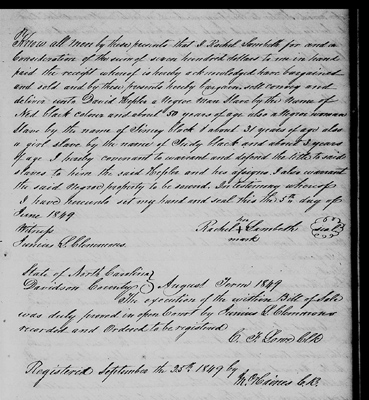 Know all men by these presents that I Rachel Lambeth for and in
Consideration of the sum of seven hundred dollars to me in hand
paid the receipt whereof is hereby acknowledged have bargained
and sold and by these presents hereby bargain sell convey and
deliver unto David a Negroe Man Slave by the Name of
Ned black colour and about 50 years of age also a Negroe woman
Slave by the name of black & about 31 years of age also
a girl slave by the name of black and about 3 years
of age I hereby covenant to warrant and defend the title to said
slaves to him the said and his assigns I also warrant
the said Negroe property to be sound. In testimony whereof
I have hereunto set my hand and seal this the 5th day of
June 1849
Witness
Rachel her X mark Lambeth seal
Junius L Clemmons
State of North Carolina
Davidson County August Term 1849
The execution of the within Bill of Sale
was duly proved in open Court by Junius L Clemmons
recorded and Ordered to be registered
C. F. Lowe Clk
Registered September the 25th 1849 by